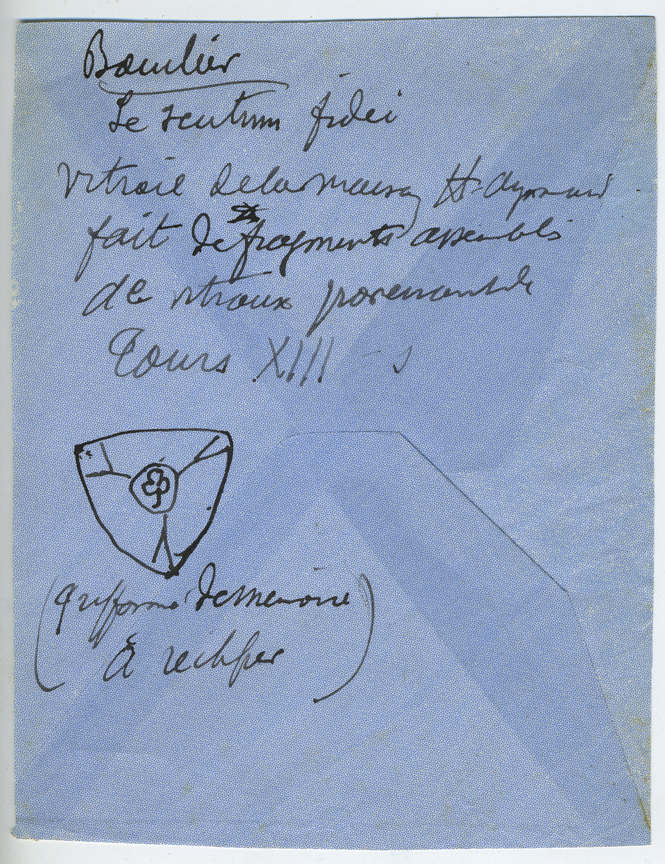 Bouclier
Le scutum fidei
vitrail de la maison H.
fait de fragments assemblés
de vitraux provenant de
Tours XIII s
( de memoire
à rectifier )